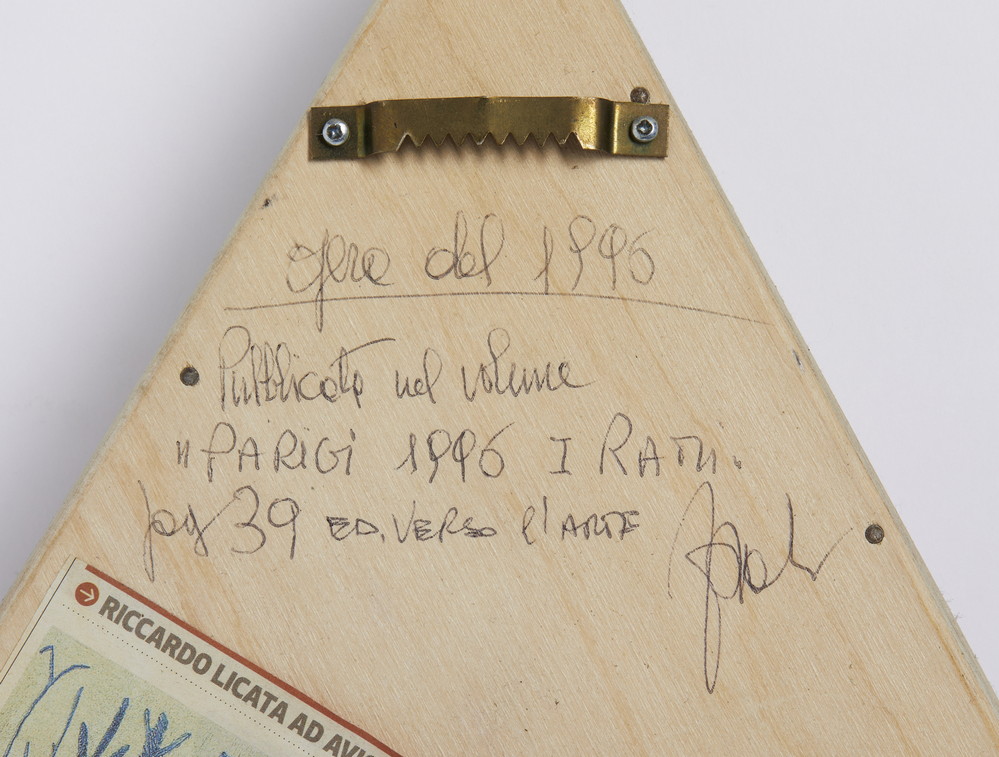 opera del 1996
Pubblicata nel volume
"PARIGI 1996 I RATTI"
pag 39 ED. VERSO l'ARTE
RICCARDO LICATA AD AVIG